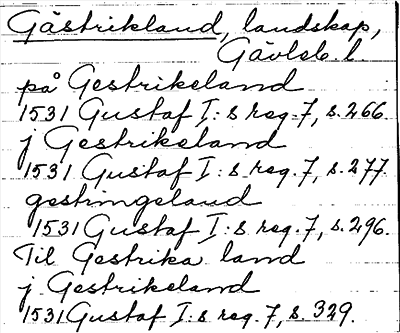 Gästrikland, landskap,
Gävleb. l.
på Gestrikeland
1531 Gustaf I:s reg. 7, s. 266.
j Gestrikeland
1531 Gustaf I:s reg. 7, s. 277
gestringeland
1531 Gustaf I:s reg. 7, s. 296.
Til Gestrika land
j Gestrikeland
1531 Gustaf I:s reg. 7, s. 329.